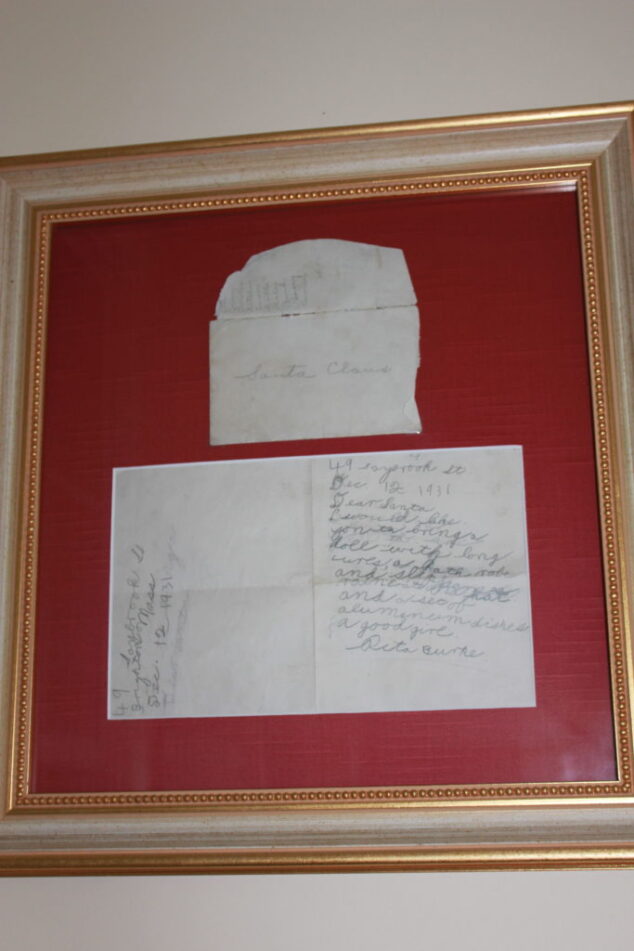 Santa Claus
49 saybrook st
Dec 12 1931
Dear Santa
I would like
you to bring a
doll with long
curls, a bath robe
and slippers
and a set of
aluminum dishes
a good girl
Rita Burke
49 Saybrook St
Brighton Mass
Dec. 12 1931